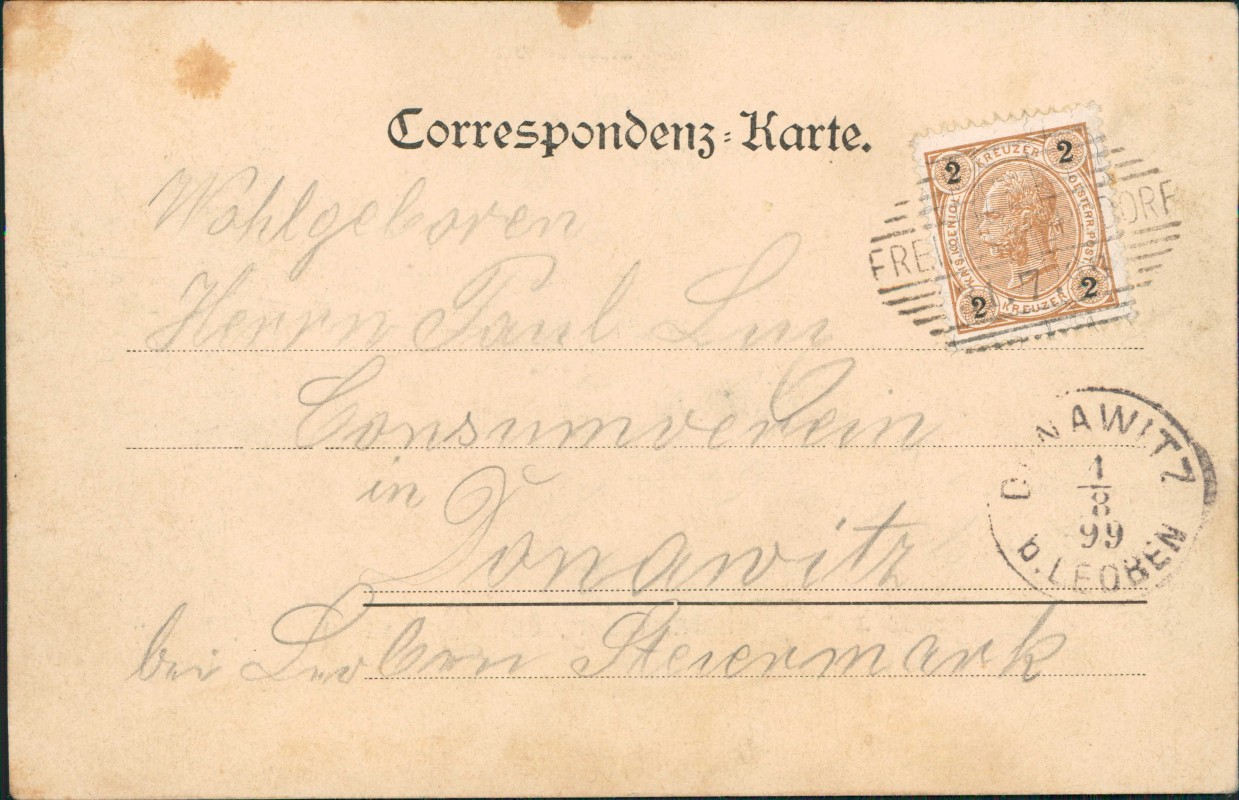 Correspondenz-Karte.
2 KREUZER 2
KAIS. KOENIGL. OESTERR. POST
2 KREUZER 2
FRE DORF
7.
Wohlgeboren
Herrn Paul
Consumverein
in
Donawitz
bei Leoben Steiermark
D NAWITZ
1
8
99
b. LEOBEN